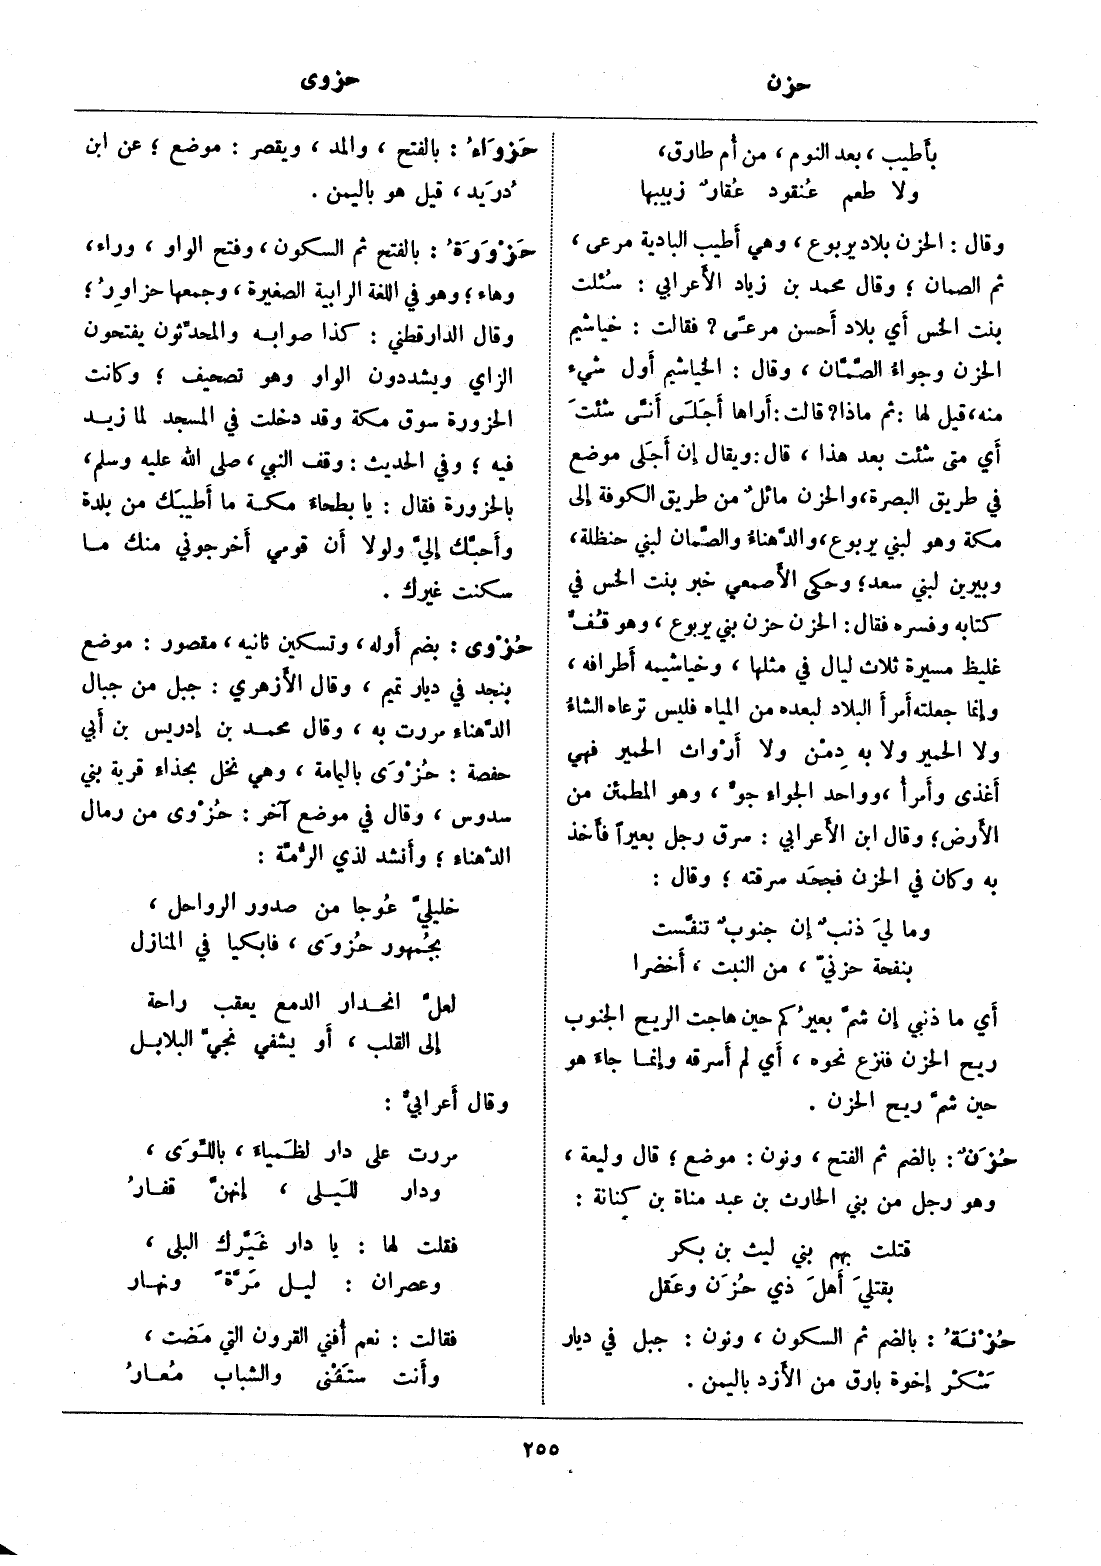 حزن
حزوى
بأطيب ، بعد النوم ، من أم طارق،
ولا طعم عنقود عُقارٌ زبيبها
وقال : الحزن بلاد يربوع ، وهي أَطيب البادية مرعى ،
ثم الصمان ؛ وقال محمد بن زياد الأَعرابي : سُئلت
بنت الخس أي بلاد أَحسن مرعًى ? فقالت : خياشيم
الحزن وجواءُ الصَّمَّان ، وقال : الخياشيم أَول شيء
منه، قيل لها : ثم ماذا ? قالت : أَراها أَجَلَى أَنَّى شئتَ
أَي متى شئت بعد هذا ، قال : ويقال إن أَجَلى موضع
في طريق البصرة، والحزن مائلٌ من طريق الكوفة إلى
مكة وهو لبني يربوع، والدَّهناءُ والصَّمان لبني حنظلة،
وبيرين لبني سعد؛ وحكى الأَصمعي خبر بنت الخس في
كتابه وفسره فقال : الحزن حزن بني يربوع ، وهو قُفٌّ
غليظ مسيرة ثلاث ليال في مثلها ، وخياشيمه أطرافه ،
وإنما جعلته أَمرأَ البلاد لبعده من المياه فليس ترعاه الشاءُ
ولا الحمير ولا به دِمْن ولا أَرْواث الحمير فهي
أَغذى وأَمرأُ ، وواحد الجواء جوٌّ ، وهو المطمئن من
الأَرض؛ وقال ابن الأَعرابي : سرق رجل بعيراً فأُخذ
به وكان في الحزن فجحَد سرقته ؛ وقال :
وما ليَ ذنبٌ إن جنوبٌ تنفَّست
بنفحة حزنيّ ، من النبت ، أَخضرا
أَي ما ذنبي إن شمَّ بعيرُكم حين هاجت الريح الجنوب
ريح الحزن فنزع نحوه ، أَي لم أَسرقه وإنما جاءَ هو
حين شمَّ ريح الحزن .
حُزَنٌ : بالضم ثم الفتح ، ونون : موضع ؛ قال وليعة ،
وهو رجل من بني الحارث بن عبد مناة بن كِنانة :
قتلت بهم بني ليث بن بكر
بقتلَى أَهلَ ذي حُزَن وعَقل
حُزْنَةُ : بالضم ثم السكون ، ونون : جبل في ديار
شَكرْ إخوة بارق من الأَزد باليمن .
حَزوَاءُ : بالفتح ، والمد ، ويقصر : موضع ؛ عن ابن
دُرَيد ، قيل هو باليمن .
حَزْوَرَةُ : بالفتح ثم السكون ، وفتح الواو ، وراء ،
وهاء ؛ وهو في اللغة الرابية الصغيرة ، وجمعها حزاوِرُ ؛
وقال الدارقطني : كذا صوابه والمحدّثون يفتحون
الزاي ويشددون الواو وهو تصحيف ؛ وكانت
الحزورة سوق مكة وقد دخلت في المسجد لما زيد
فيه ؛ وفي الحديث : وقف النبي ، صلى الله عليه وسلم،
بالحزورة فقال : يا بطحاءَ مكة ما أَطيبَك من بلدة
وأَحبَّك إليَّ ولولا أَن قومي أَخرجوني منك ما
سكنت غيرك .
حُزْوى : بضم أَوله ، وتسكين ثانيه ، مقصور : موضع
بنجد في ديار تميم ، وقال الأَزهري : جبل من جبال
الدَّهناء مررت به ، وقال محمد بن إدريس بن أَبي
حفصة : حُزْوَى باليمامة ، وهي نخل بحذاء قرية بني
سدوس ، وقال في موضع آخر : حُزْوى من رمال
الدَّهناء ؛ وأَنشد لذي الرُّمَّة :
خليليَّ عُوجا من صدور الرواحل ،
بجُمهور حُزوَى ، فابكيا في المنازل
لعلَّ انحدار الدمع يعقب راحة
إلى القلب ، أَو يشفي نجيَّ البلابل
وقال أَعرابيٌّ :
مررت على دار لظَمياءَ ، باللِّوَى ،
ودار لليلى ، إنهنَّ قفارُ
فقلت لها : يا دار غَيَّرك البلى ،
وعصران : ليل مَرَّةً ونهار
فقالت : نعم أُفني القرون التي مَضت ،
وأَنت ستَفْنى والشباب مُعارُ
٢٥٥